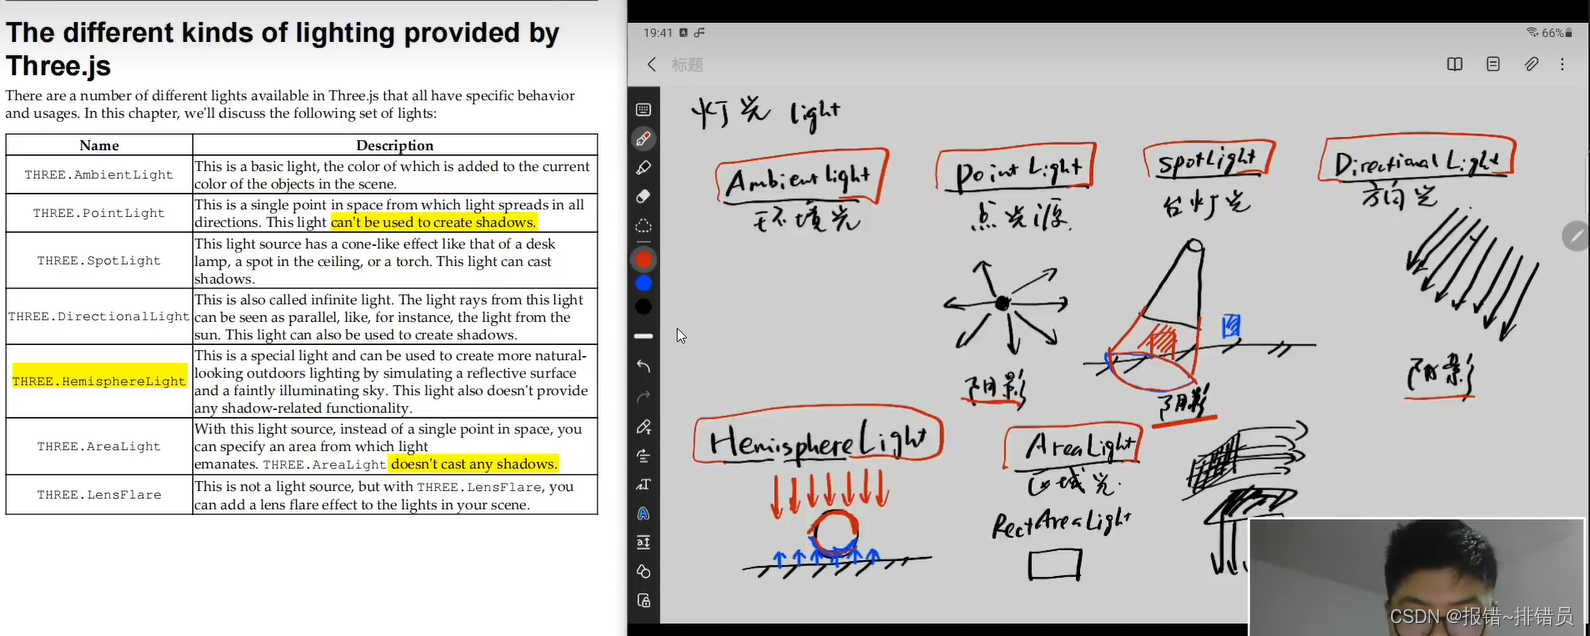 The different kinds of lighting provided by
Three.js
There are a number of different lights available in Three.js that all have specific behavior
and usages. In this chapter, we'll discuss the following set of lights:
Name Description
THREE.AmbientLight This is a basic light, the color of which is added to the current
color of the objects in the scene.
THREE.PointLight This is a single point in space from which light spreads in all
directions. This light can't be used to create shadows.
THREE.SpotLight This light source has a cone-like effect like that of a desk
lamp, a spot in the ceiling, or a torch. This light can cast
shadows.
THREE.DirectionalLight This is also called infinite light. The light rays from this light
can be seen as parallel, like, for instance, the light from the
sun. This light can also be used to create shadows.
THREE.HemisphereLight This is a special light and can be used to create more natural-
looking outdoors lighting by simulating a reflective surface
and a faintly illuminating sky. This light also doesn't provide
any shadow-related functionality.
THREE.AreaLight With this light source, instead of a single point in space, you
can specify an area from which light
emanates. THREE.AreaLight doesn't cast any shadows.
THREE.LensFlare This is not a light source, but with THREE.LensFlare, you
can add a lens flare effect to the lights in your scene.
19:41
66%
标题
灯光 light
Ambient Light
环境光
Point Light
点光源
SpotLight
台灯光
Directional Light
方向光
阴影
阴影
阴影
Hemisphere Light
Area Light
区域光
RectAreaLight
CSDN @报错~排错员